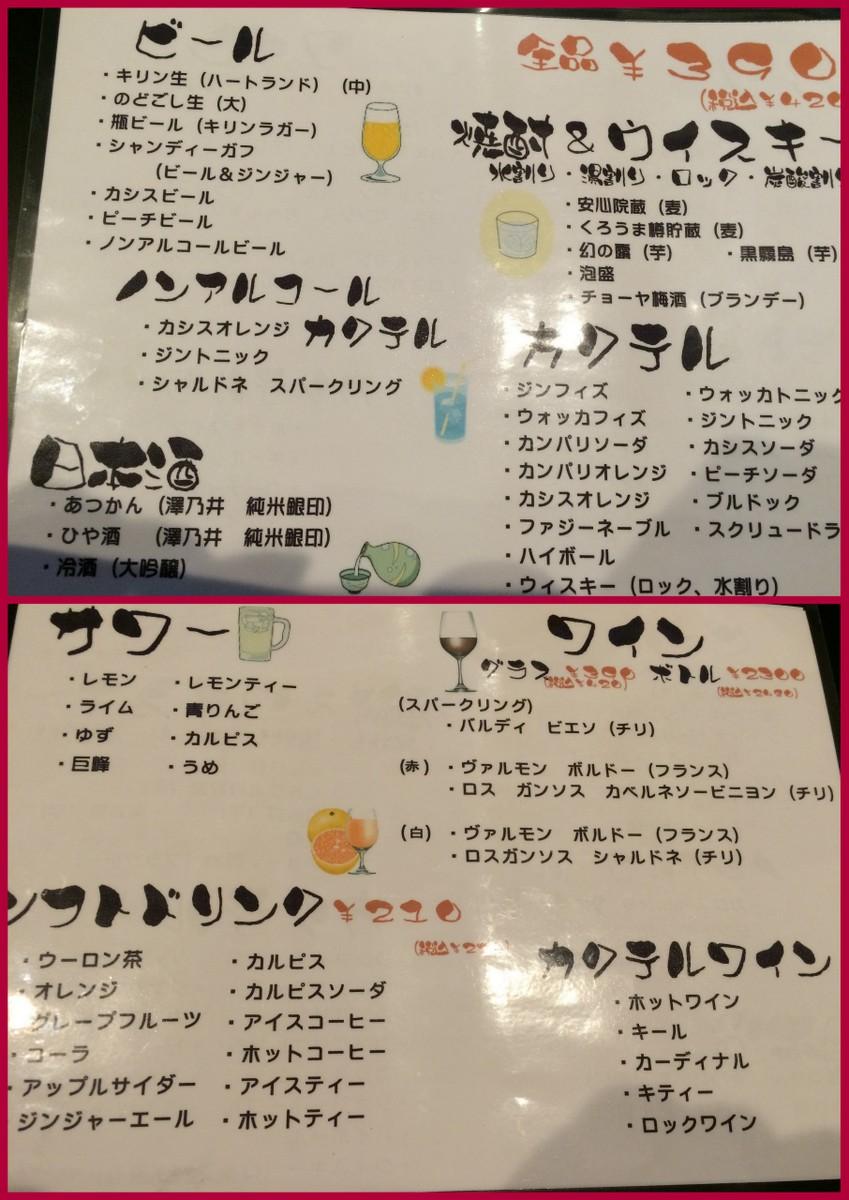 ビール
・キリン生（ハートランド）（中）
・のどごし生（大）
・瓶ビール（キリンラガー）
・シャンディーガフ
（ビール＆ジンジャー）
・カシスビール
・ピーチビール
・ノンアルコールビール
ノンアルコール
カクテル
・カシスオレンジ
・ジントニック
・シャルドネ　スパークリング
日本酒
・あつかん（澤乃井　純米銀印）
・ひや酒　（澤乃井　純米銀印）
・冷酒（大吟醸）
全品¥390
(税込¥420
焼酎＆ウイスキー
水割り・湯割り・ロック・炭酸割り
・安心院蔵（麦）
・くろうま樽貯蔵（麦）
・幻の露（芋）　・黒霧島（芋）
・泡盛
・チョーヤ梅酒（ブランデー）
カクテル
・ジンフィズ　・ウォッカトニック
・ウォッカフィズ　・ジントニック
・カンパリソーダ　・カシスソーダ
・カンパリオレンジ　・ピーチソーダ
・カシスオレンジ　・ブルドック
・ファジーネーブル　・スクリュードラ
・ハイボール
・ウィスキー（ロック、水割り）
サワー
・レモン　・レモンティー
・ライム　・青りんご
・ゆず　・カルピス
・巨峰　・うめ
ワイン
グラス¥390　ボトル¥2300
(税込¥420)
（スパークリング）
・バルディ　ビエソ（チリ）
（赤）・ヴァルモン　ボルドー（フランス）
・ロス　ガンソス　カベルネソービニヨン（チリ）
（白）・ヴァルモン　ボルドー（フランス）
・ロスガンソス　シャルドネ（チリ）
ソフトドリンク¥210
・ウーロン茶　・カルピス
・オレンジ　・カルピスソーダ
グレープフルーツ　・アイスコーヒー
・コーラ　・ホットコーヒー
・アップルサイダー　・アイスティー
ジンジャーエール　・ホットティー
カクテルワイン
・ホットワイン
・キール
・カーディナル
・キティー
・ロックワイン